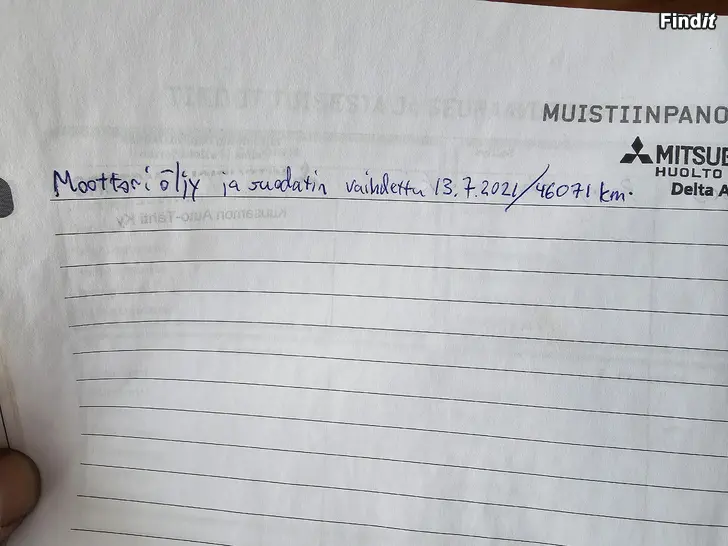 Findit
MUISTIINPANO
MITSUB
HUOLTO
Delta A
Moottori öljy ja suodatin vaihdettu 13.7.2021/46071 km.
Kuusamon Auto-Tahti Ky